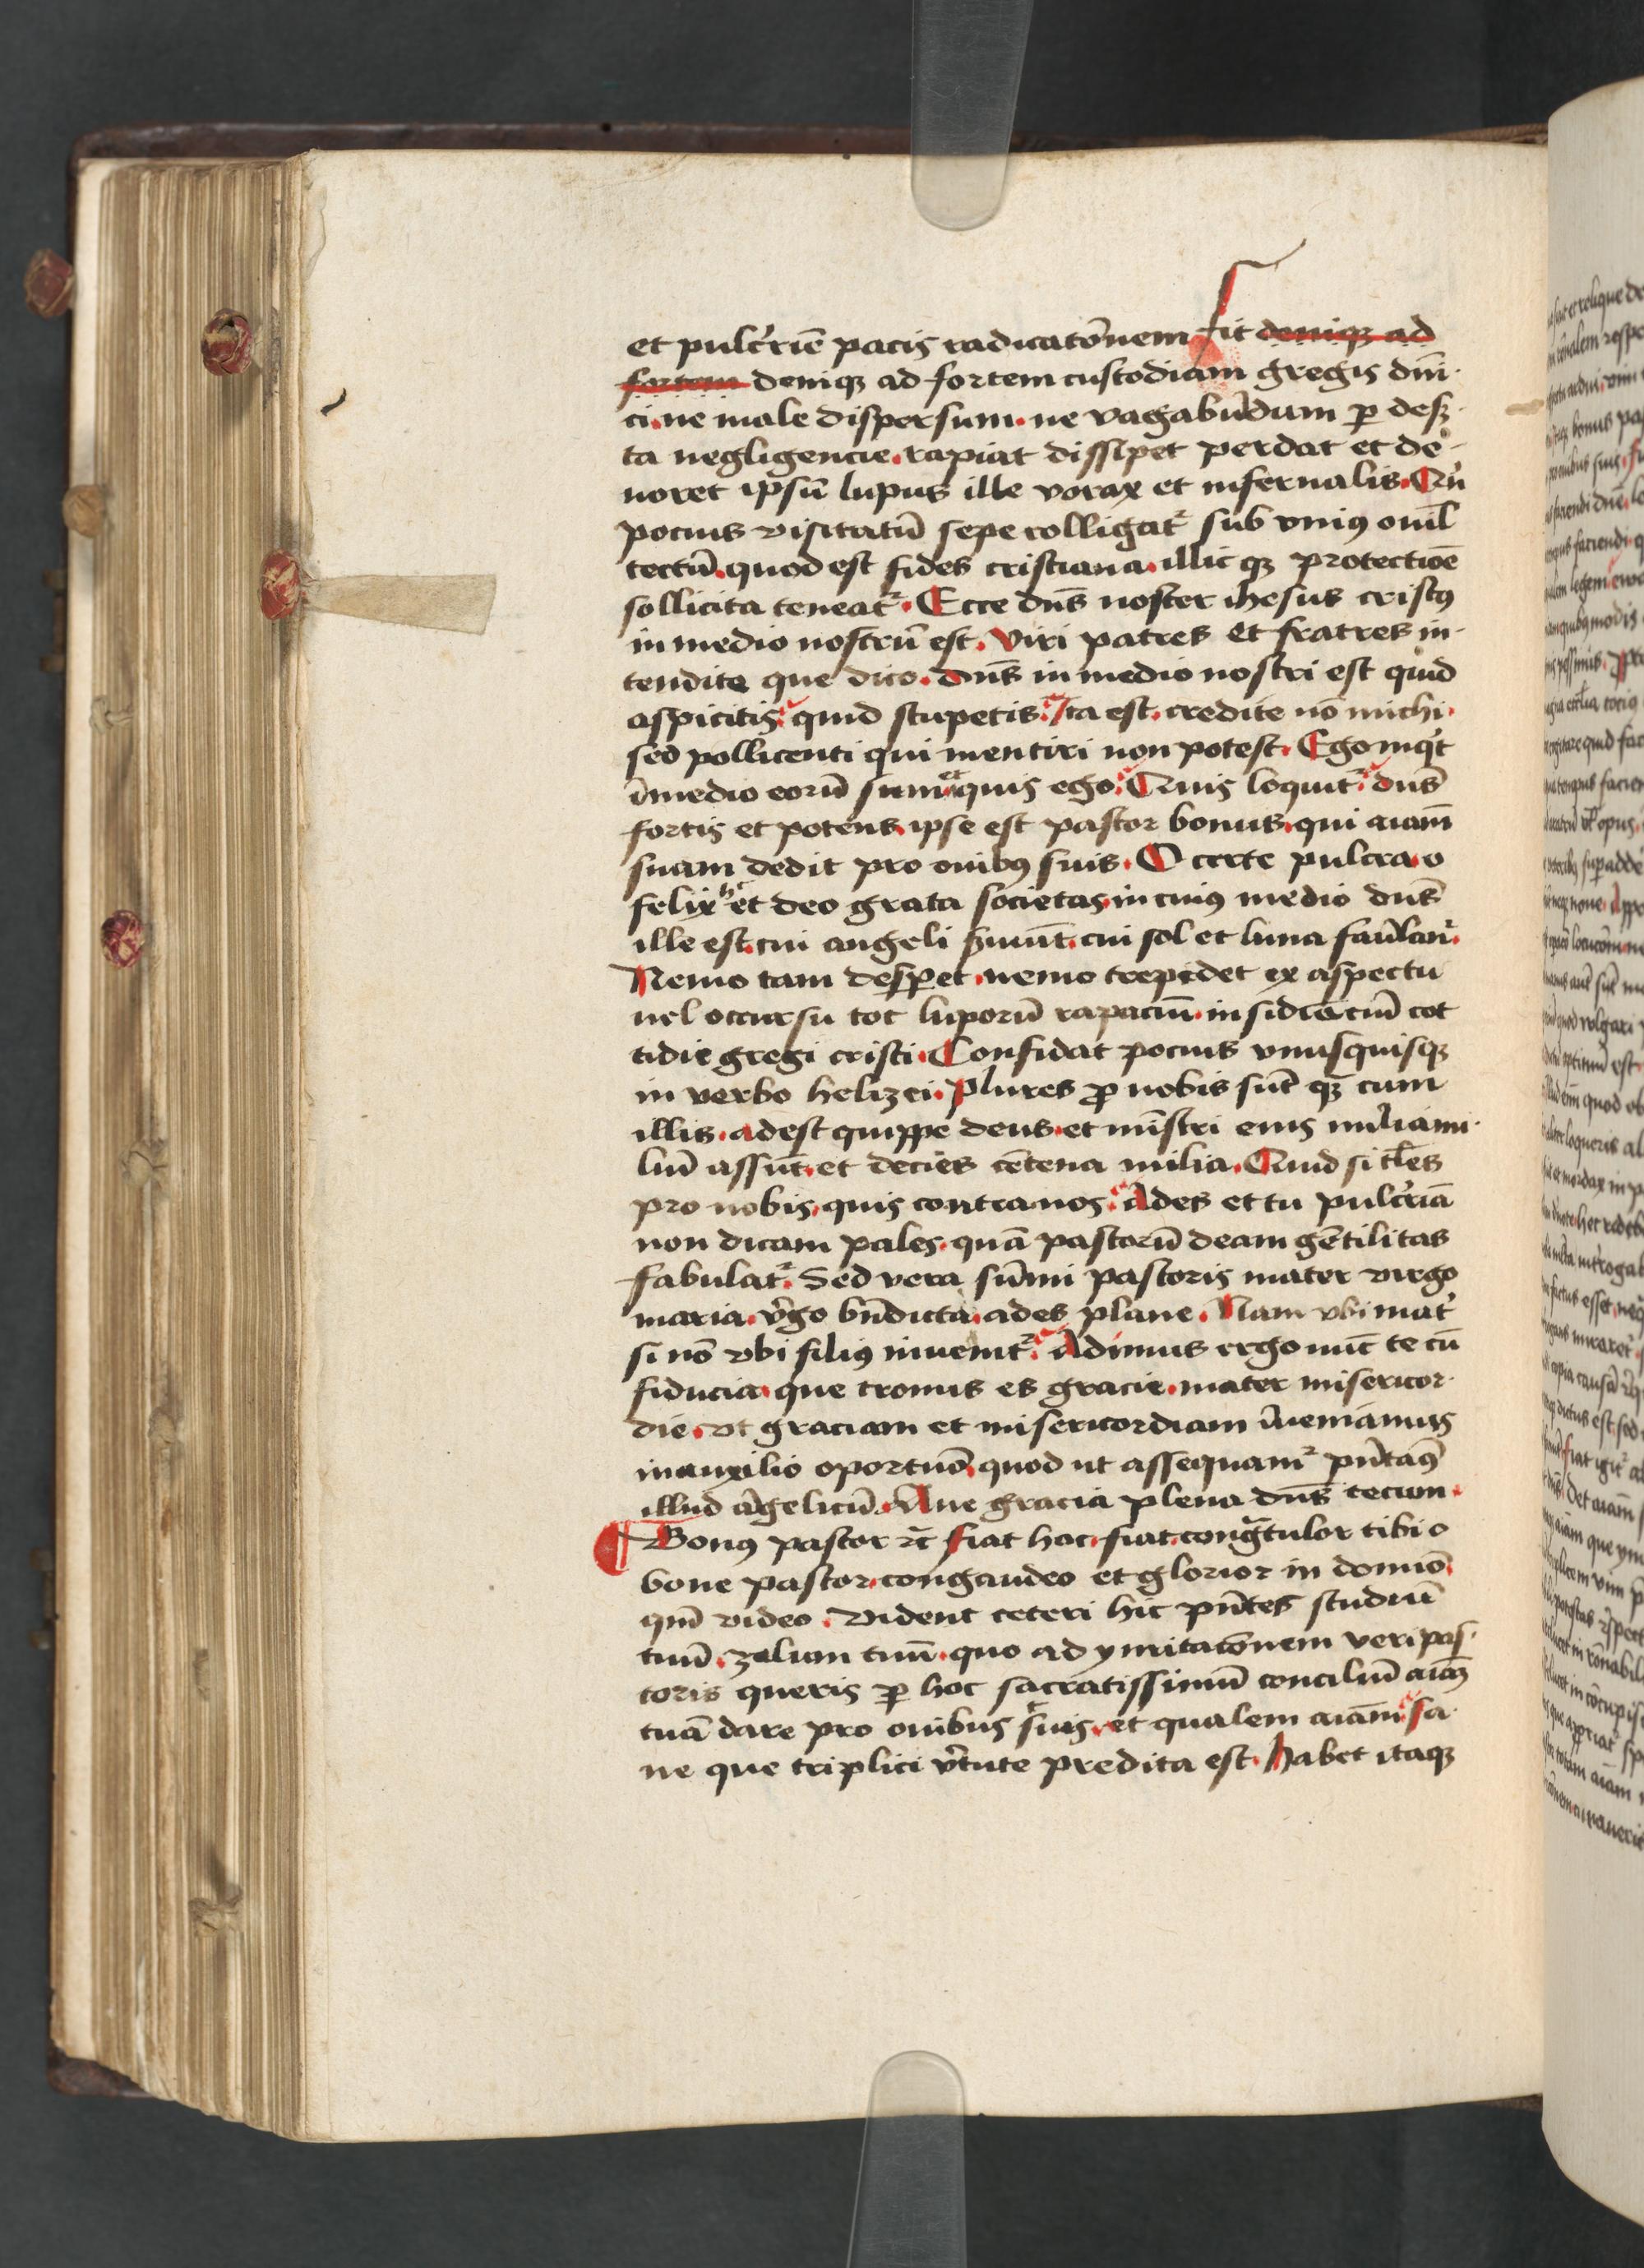 et pulcrie pacis radicatōnem fit deniqꝫ ad
fortem deniqꝫ ad fortem custodiam gregis dn̄i
ci. ne male dispersum. ne vagabūdum ꝑ des
ta negligencie. rapiat dissipet perdat et de
uoret ipsū lupus ille vorax et infernalis. Qn̄
pocius visitatū sepe colligat᷑ sub vniꝰ ouil
tectū. quod est fides cristiana. illic qꝫ protectiōe
sollicita teneat᷑. Ecce dn̄s noster ihesus cristꝰ
in medio nostrū est. Viri patres et fratres in
tendite que dico. dn̄s in medio nostri est quid
aspicitis. quid stupetis. Ita est. credite nō michi.
sed pollicenti qui mentiri non potest. Ego inqͥt
ī medio eorū sum. et quis ego. Quis loquit᷑. dn̄s
fortis et potens. ipse est pastor bonus. qui aīam
suam dedit pro ouibꝰ suis. O certe pulcra. o
felix h̄ et deo grata societas. in cuiꝰ medio dn̄s
ille est. cui angeli ẜuiūt. cui sol et luna famlan᷑.
Nemo tam desꝑet. nemo trepidet ex aspectu
uel occursu tot luporū rapaciū. insidiātiū cot
tidie gregi cristi. Confidat pocius vnusquisqꝫ
in verbo helizei. Plures ꝓ nobis sūt qꝫ cum
illis. adest quippe deus. et mīstri eius milia mi
liū assūt. et decies cētena milia. Quid si tles
pro nobis. quis contra nos. Ades et tu pulcriā
non dicam pales. quā pastorū deam gētilitas
fabulat᷑. Sed vera sūmi pastoris mater virgo
maria. v̄go bn̄dicta. ades plane. Nam vbi mat̉
si nō vbi filiꝰ inuenit᷑. Adimus ergo nūc te cū
fiducia. que tronus es gracie. mater misericor
die. vt graciam et misericordiam īueniamus
in auxilio oportuno. quod ut assequam᷑ pn̄tāꝰ
illud āgelicū. Aue gracia plena dn̄s tecum.
Bonꝰ pastor ⁊c̄ fiat hoc. fiat. congͣtulor tibi o
bone pastor. congaudeo et glorior in domino
qm̄ video. Vident ceteri hic pn̄tes studiū
tuū. zelum tuū. quo ad ymitacōnem veri pas
toris queris ꝑ hoc sacratissimū conciliū aīaꝫ
tuā dare pro ouibus suis. et qualem aīam. Sa
ne que triplici v̄tute predita est. Habet itaqꝫ